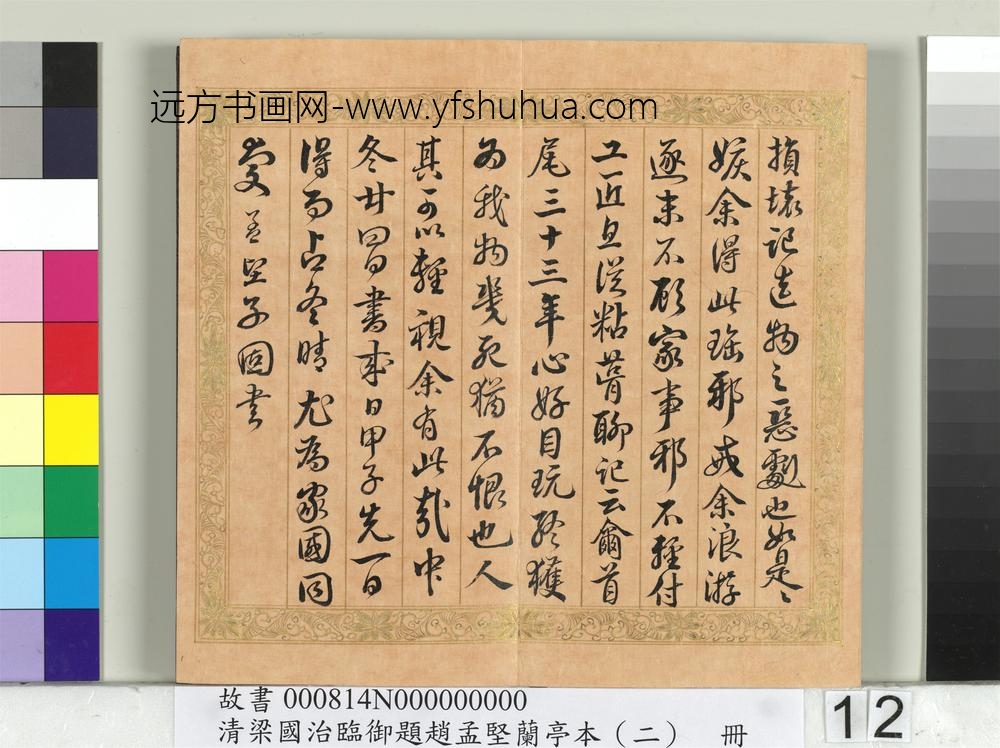 远方书画网-www.yfshuhua.com
損壞記造物之一惡劇也如是々
嫉余得此瑤邪戒余浪游
逐末不顧家事邪不輕付
工匠且從粘聊記云爾首
尾三十三年心好目玩終獲
為我物幾死猶不恨也人
其可以輕視余有此哉中
冬廿日書來日甲子先一日
得雨占冬晴尤為家國同
慶 孟堅子固書
故書 000814N000000000
清梁國治臨御題趙孟堅蘭亭本（二） 冊
12